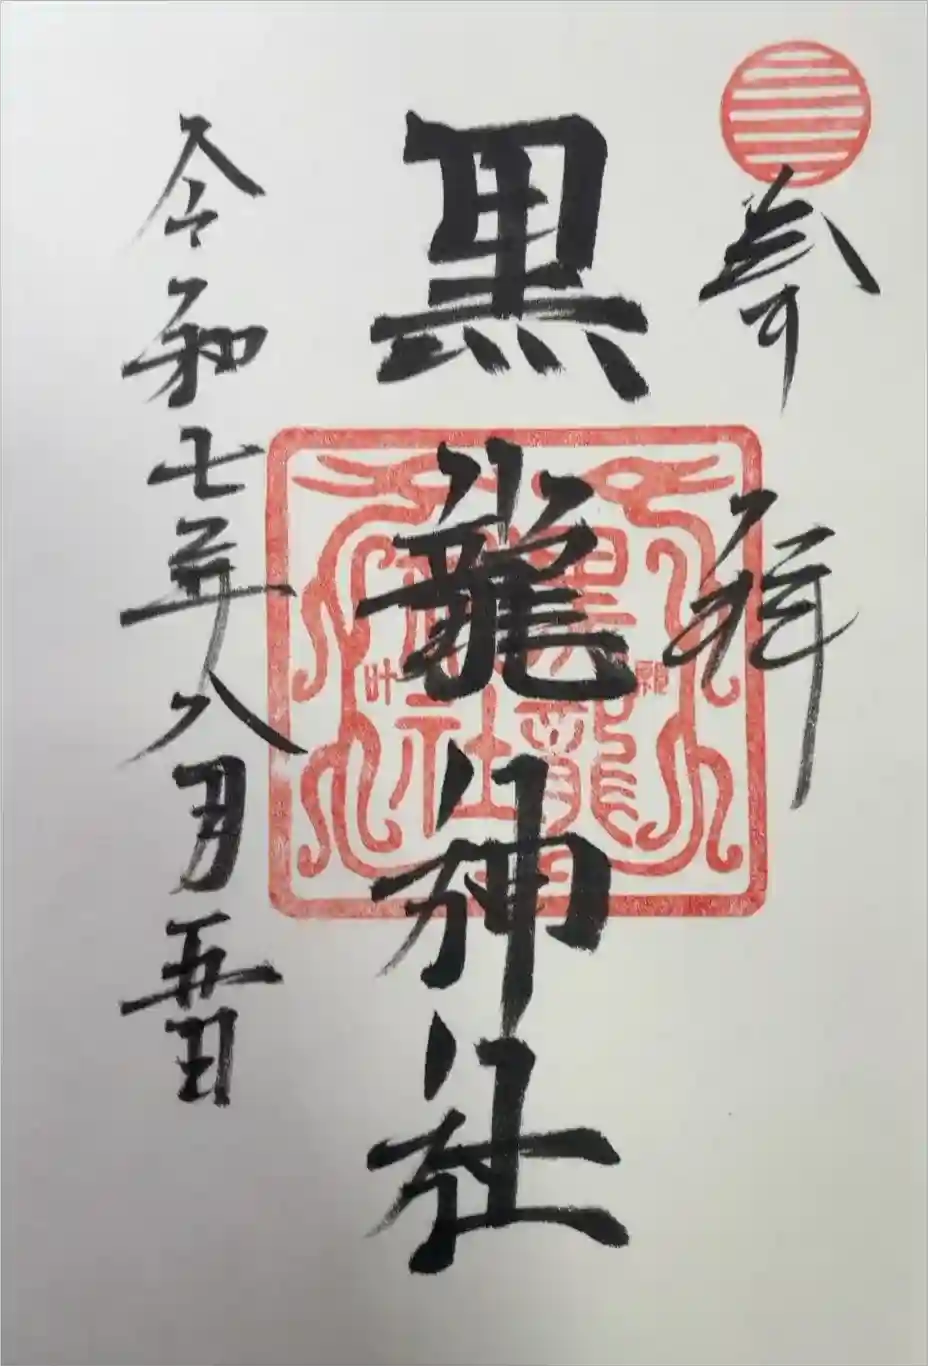 奉拝
黒龍神社
令和七年八月五日
黒龍
神社
願
叶